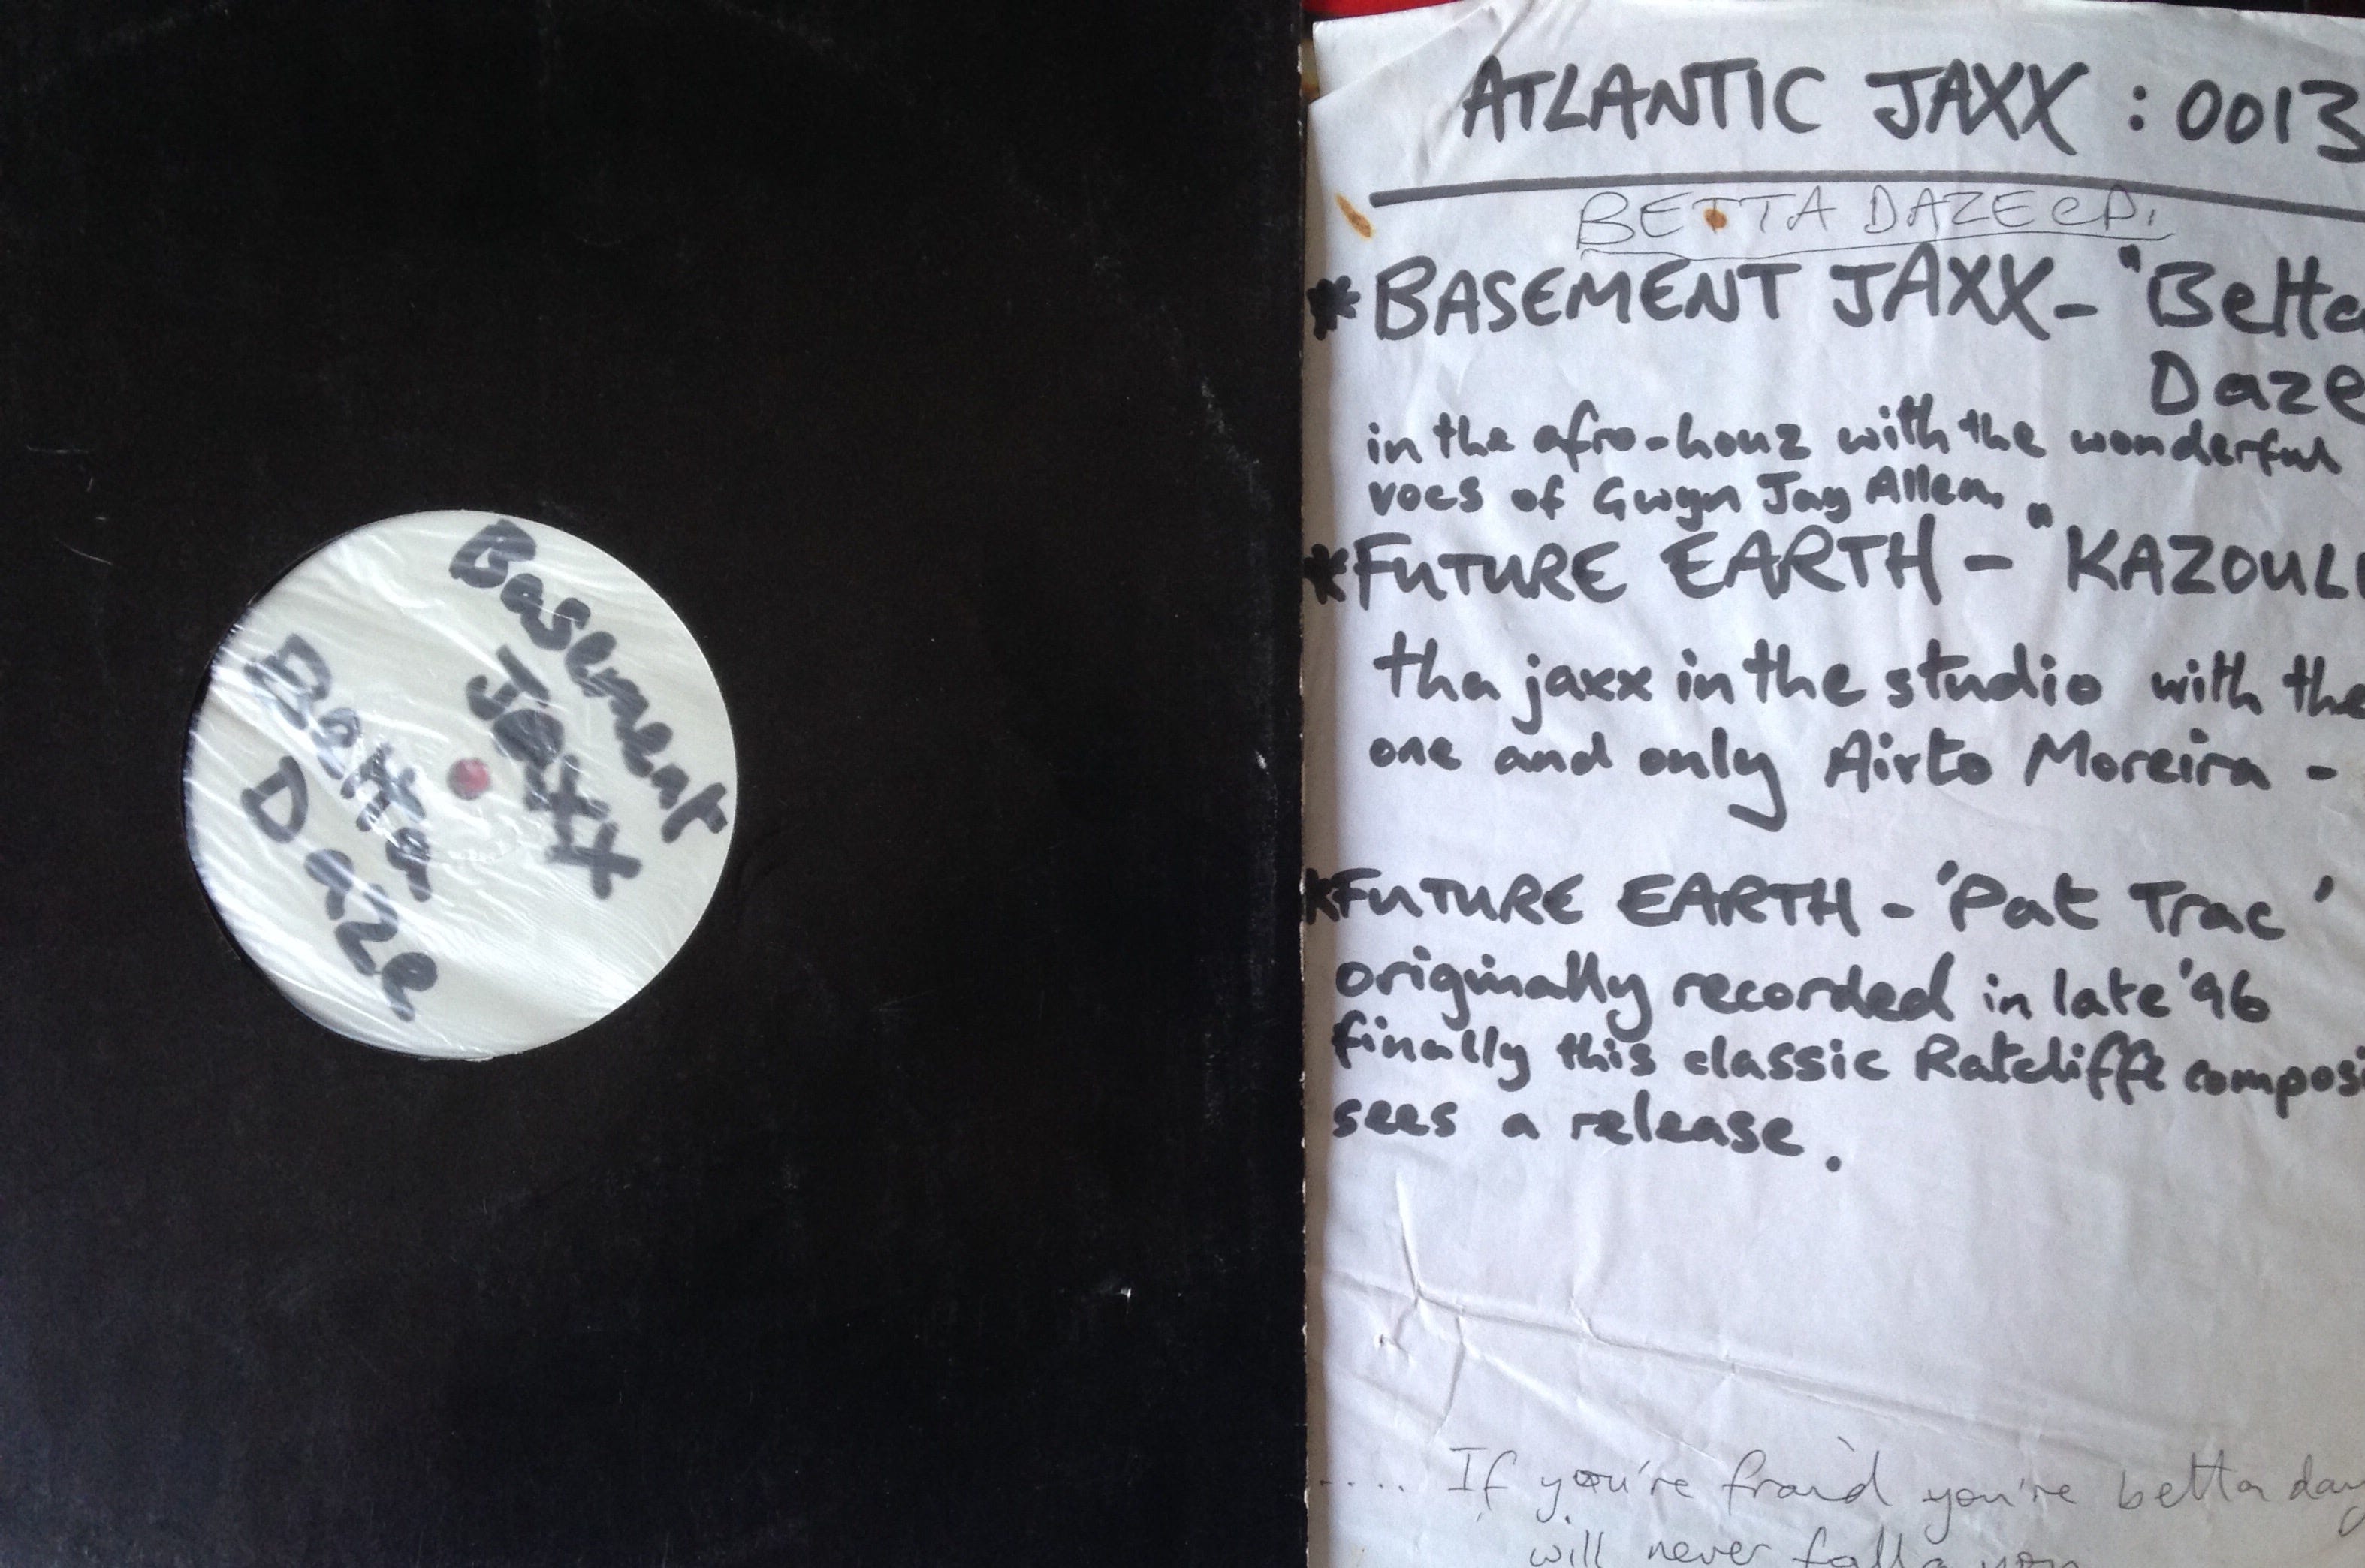 Basement
Jaxx
Betta
Daze
ATLANTIC JAXX : 0013
BETTA DAZE eP.
* BASEMENT JAXX - "Betta
Daze
in the afro-houz with the wonderful
vocs of Gwyn Jay Allen.
* FUTURE EARTH - "KAZOULI
tha jaxx in the studio with the
one and only Airto Moreira -
* FUTURE EARTH - 'Pat Trac'
originally recorded in late '96
finally this classic Ratcliffe composi
sees a release.
.... If you're fraid you're betta day
will never